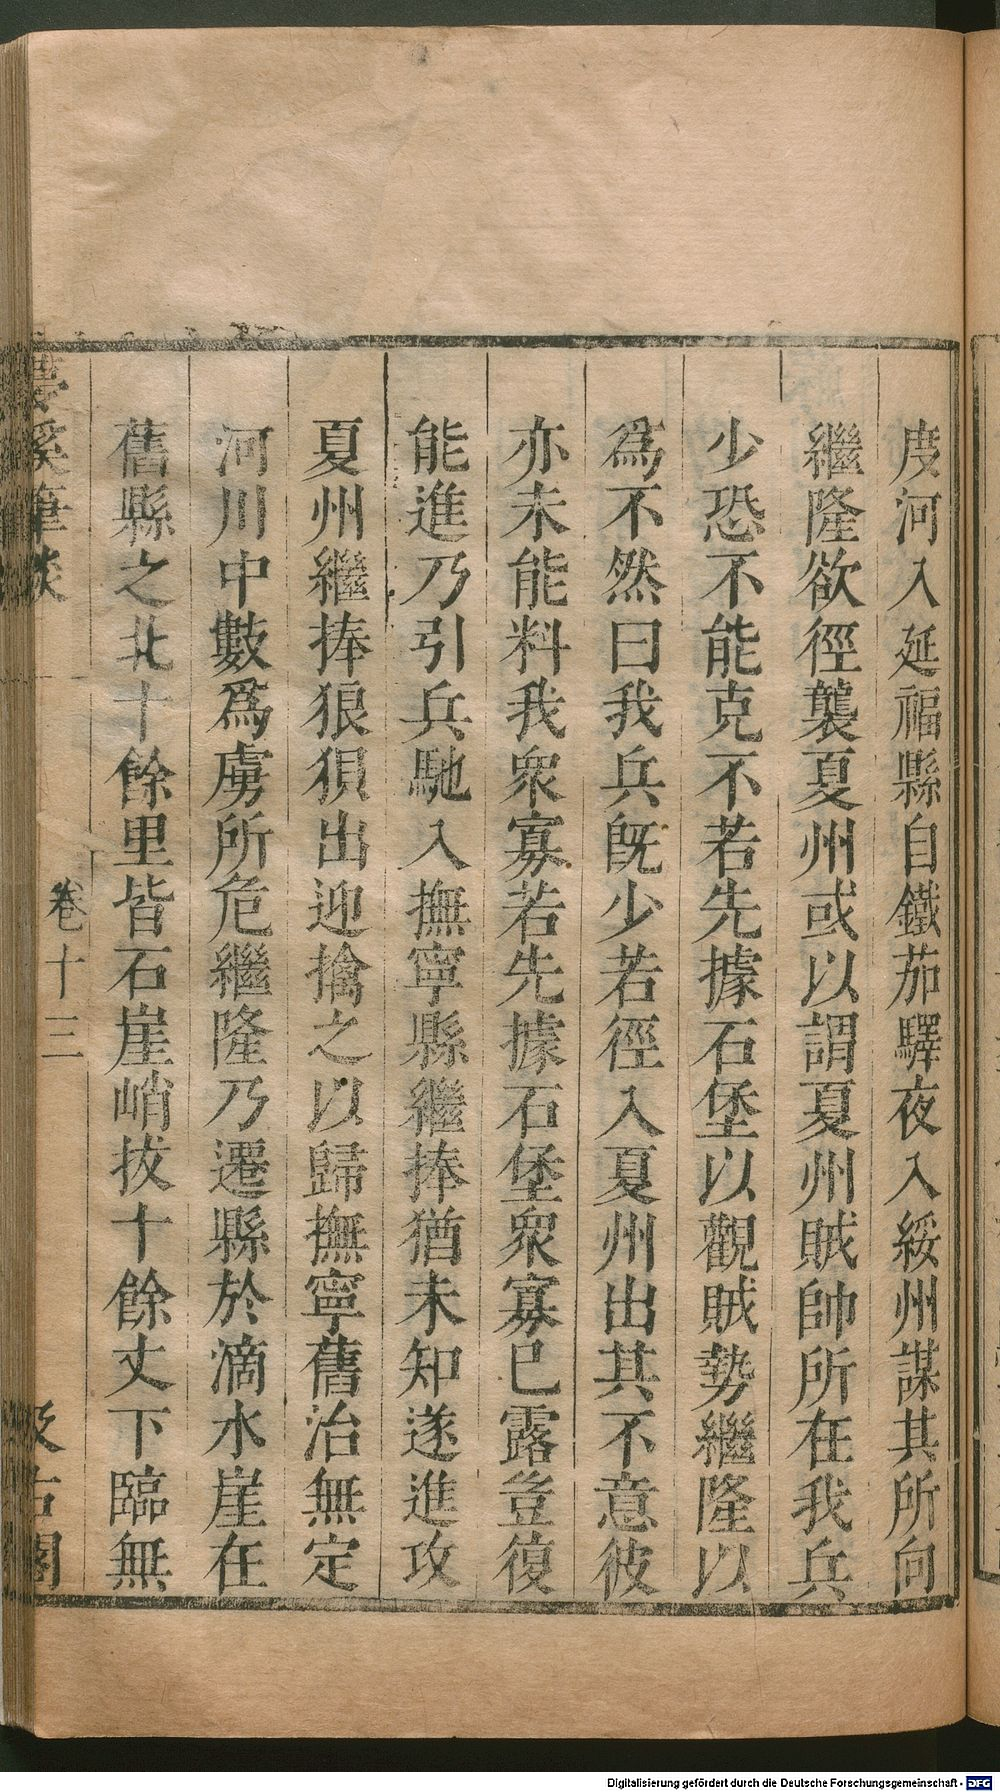 度河入延福縣自鐵茄驛夜入綏州謀其所向
繼隆欲徑襲夏州或以謂夏州賊帥所在我兵
少恐不能克不若先據石堡以觀賊勢繼隆以
爲不然曰我兵旣少若徑入夏州出其不意彼
亦未能料我衆寡若先據石堡衆寡已露豈復
能進乃引兵馳入撫寧縣繼捧猶未知遂進攻
夏州繼捧狼狽出迎擒之以歸撫寧舊治無定
河川中數爲虜所危繼隆乃遷縣於滴水崖在
舊縣之北十餘里皆石崖峭拔十餘丈下臨無
夢溪筆談
卷十三
汲古閣
Digitalisierung gefördert durch die Deutsche Forschungsgemeinschaft - DFG